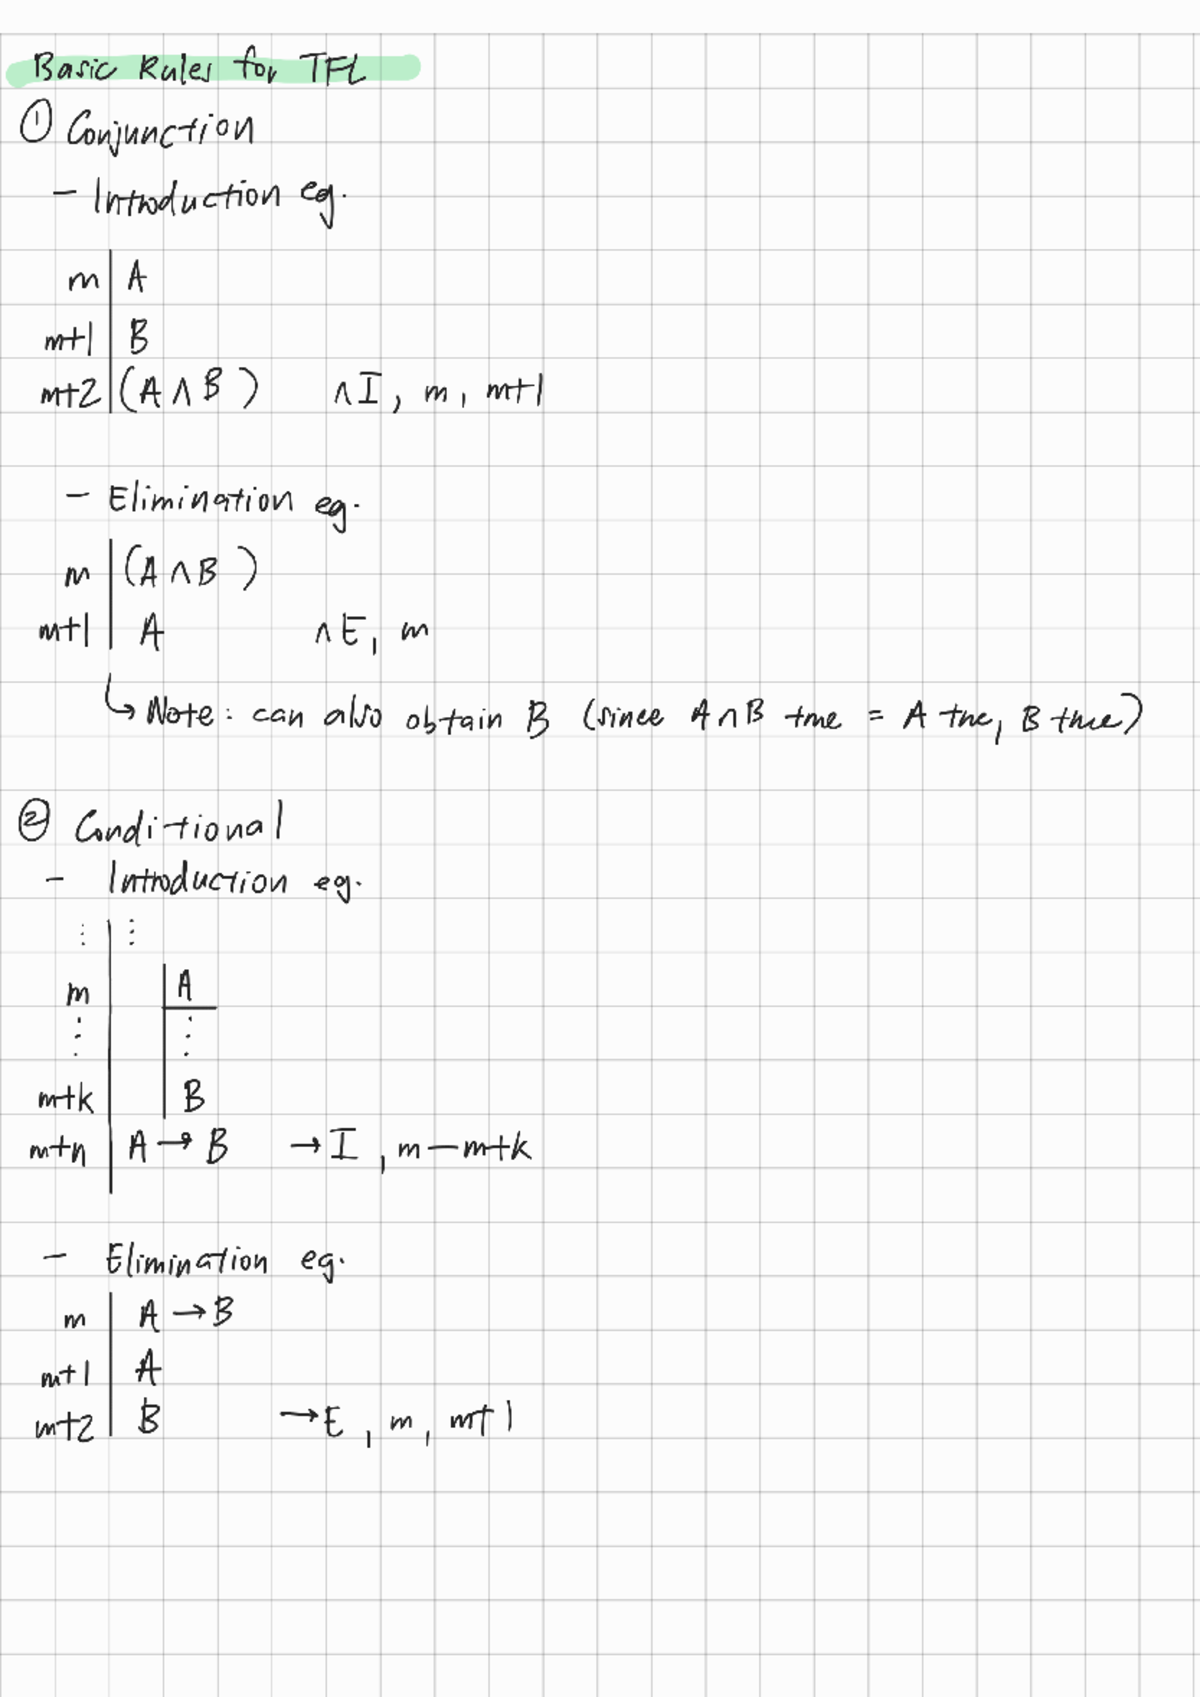 Basic Rules for TFL
① Conjunction
- Introduction eg.
m | A
m+1 | B
m+2 | (A ∧ B) ∧I, m, m+1
- Elimination eg.
m | (A ∧ B)
m+1 | A ∧E, m
↳ Note: can also obtain B (since A ∧ B true = A true, B true)
② Conditional
- Introduction eg.
⋮ | ⋮
m | | A
⋮ | | ⋮
m+k | | B
m+n | A → B → I, m—m+k
- Elimination eg.
m | A → B
m+1 | A
m+2 | B → E, m, m+1